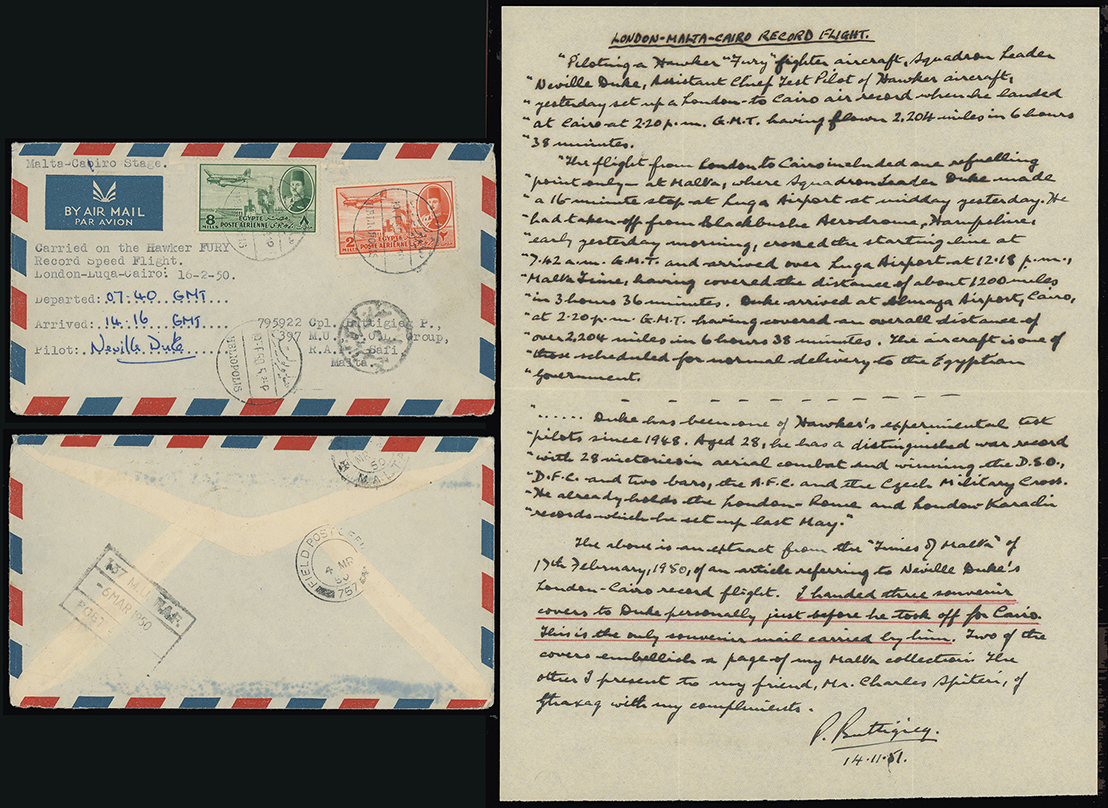 Malta-Cairo Stage.
BY AIR MAIL
PAR AVION
8
MILLS
EGYPTE
POSTE AÉRIENNE
٨
2
MILLS
EGYPTE
POSTE AÉRIENNE
٢
Carried on the Hawker FURY
Record Speed Flight.
London-Luqa-Cairo: 16-2-50.
Departed: 07.40 GMT
Arrived: 14.16 GMT
Pilot: Neville Duke
795922 Cpl. P.,
397 M.U. Group,
R.A. Safi
Malta.
HELIOPOLIS
MALTA
FIELD POST OFFICE
4 MR
50
757
137 M.U. RAF.
-6 MAR 1950
PORT
LONDON-MALTA-CAIRO RECORD FLIGHT.
"Piloting a Hawker "Fury" fighter aircraft, Squadron Leader
"Neville Duke, Assistant Chief Test Pilot of Hawker aircraft,
"yesterday set up a London-to Cairo air record when he landed
"at Cairo at 2.20 p.m. G.M.T. having flown 2,204 miles in 6 hours
"38 minutes.
"The flight from London to Cairo included one refuelling
"point only - at Malta, where Squadron Leader Duke made
"a 16 minute stop at Luqa Airport at midday yesterday. He
"had taken off from Blackbushe Aerodrome, Hampshire
"early yesterday morning, crossed the starting line at
"7.42 a.m. G.M.T. and arrived over Luqa Airport at 12.18 p.m.,
"Malta Time, having covered the distance of about 1200 miles
"in 3 hours 36 minutes. Duke arrived at Almaza Airport, Cairo,
"at 2.20 p.m. G.M.T. having covered an overall distance of
"over 2,204 miles in 6 hours 38 minutes. The aircraft is one of
"those scheduled for normal delivery to the Egyptian
"Government.
"...... Duke has been one of Hawker's experimental test
"pilots since 1948. Aged 28, he has a distinguished war record
"with 28 victories in aerial combat and winning the D.S.O.,
"D.F.C. and two bars, the A.F.C. and the Czech Military Cross.
"He already holds the London-Rome and London-Karachi
"records which he set up last May."
The above is an extract from the "Times of Malta" of
17th February, 1950, of an article referring to Neville Duke's
London-Cairo record flight. I handed three souvenir
covers to Duke personally just before he took off for Cairo.
This is the only souvenir mail carried by him. Two of the
covers embellish a page of my Malta collection. The
other I present to my friend, Mr. Charles Spiteri, of
Ghaxaq with my compliments.
P. Buttigieg.
14.11.51.